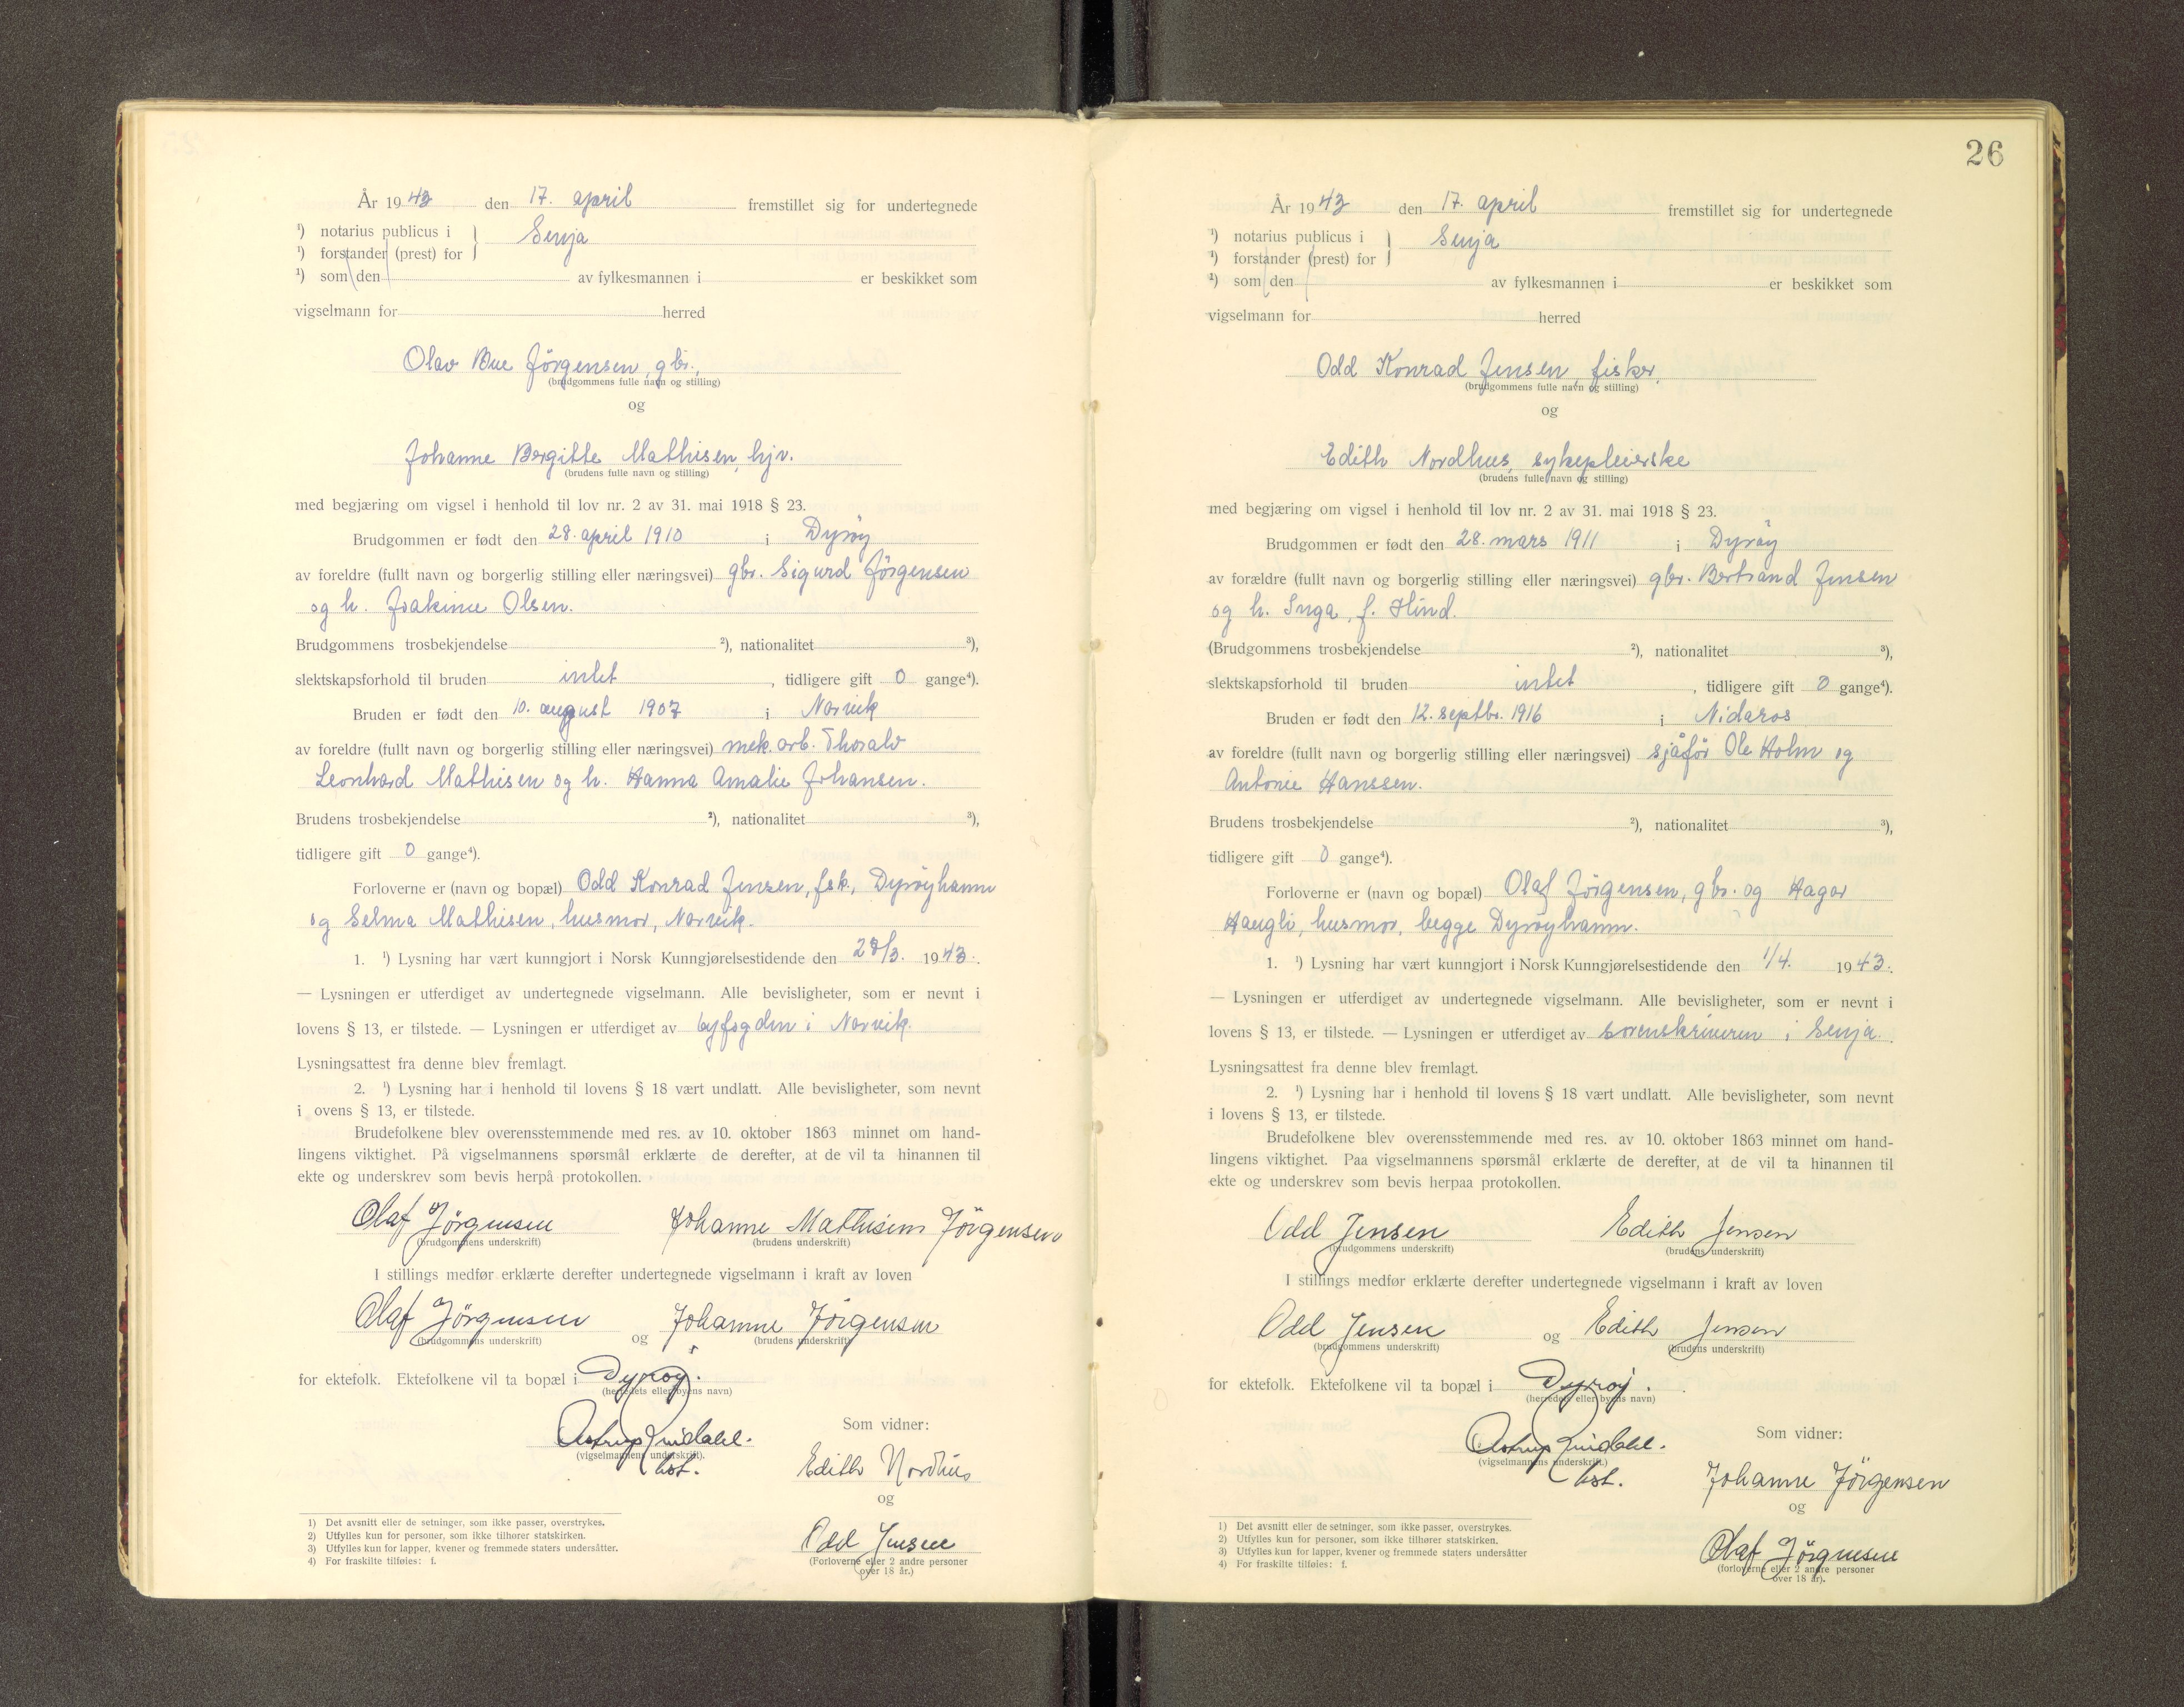 År 1943 den 17. april fremstillet sig for undertegnede
¹) notarius publicus i } Senja
¹) forstander (prest) for
¹) som den av fylkesmannen i er beskikket som
vigselmann for herred
Olav Bue Jörgensen, gbr.,
(brudgommens fulle navn og stilling)
og
Johanne Bergitte Mathisen, hjv.
(brudens fulle navn og stilling)
med begjæring om vigsel i henhold til lov nr. 2 av 31. mai 1918 § 23.
Brudgommen er født den 28. april 1910 i Dyröy
av foreldre (fullt navn og borgerlig stilling eller næringsvei) gbr. Sigurd Jörgensen
og h. Joakime Olsen.
Brudgommens trosbekjendelse ²), nationalitet ³),
slektskapsforhold til bruden intet, tidligere gift 0 gange⁴).
Bruden er født den 10. august 1907 i Narvik
av foreldre (fullt navn og borgerlig stilling eller næringsvei) mek. arb. Thoralv
Leonhard Mathisen og h. Hanna Amalie Johansen.
Brudens trosbekjendelse ²), nationalitet ³),
tidligere gift 0 gange⁴).
Forloverne er (navn og bopæl) Odd Konrad Jensen, fsk., Dyröyhamn
og Selma Mathisen, husmor, Narvik.
1. ¹) Lysning har vært kunngjort i Norsk Kunngjørelsestidende den /3. 1943.
— Lysningen er utferdiget av undertegnede vigselmann. Alle bevisligheter, som er nevnt i
lovens § 13, er tilstede. — Lysningen er utferdiget av byfogden i Narvik.
Lysningsattest fra denne blev fremlagt.
2. ¹) Lysning har i henhold til lovens § 18 vært undlatt. Alle bevisligheter, som nevnt
i ovens § 13, er tilstede.
Brudefolkene blev overensstemmende med res. av 10. oktober 1863 minnet om hand-
lingens viktighet. På vigselmannens spørsmål erklærte de derefter, at de vil ta hinannen til
ekte og underskrev som bevis herpå protokollen.
Olaf Jörgensen Johanne Mathisen Jörgensen
(brudgommens underskrift) (brudens underskrift)
I stillings medfør erklærte derefter undertegnede vigselmann i kraft av loven
Olaf Jörgensen og Johanne Jörgensen
(brudgommens underskrift) (brudens underskrift)
for ektefolk. Ektefolkene vil ta bopæl i Dyröy.
(herredets eller byens navn)
Astrup Lindahl.
(vigselmannens underskrift).
kst.
Som vidner:
Edith Nordhus
og
Odd Jensen
(Forloverne eller 2 andre personer
over 18 år.)
1) Det avsnitt eller de setninger, som ikke passer, overstrykes.
2) Utfylles kun for personer, som ikke tilhører statskirken.
3) Utfylles kun for lapper, kvener og fremmede staters undersåtter.
4) For fraskilte tilføies: f.
26
År 1943 den 17. april fremstillet sig for undertegnede
¹) notarius publicus i } Senja
¹) forstander (prest) for
¹) som den av fylkesmannen i er beskikket som
vigselmann for herred
Odd Konrad Jensen, fisker,
(brudgommens fulle navn og stilling)
og
Edith Nordhus, sykepleierske
(brudens fulle navn og stilling)
med begjæring om vigsel i henhold til lov nr. 2 av 31. mai 1918 § 23.
Brudgommen er født den 28. mars 1911 i Dyröy
av forældre (fullt navn og borgerlig stilling eller næringsvei) gbr. Bertrand Jensen
og h. Inga, f. Hind.
(Brudgommens trosbekjendelse ²), nationalitet ³),
slektskapsforhold til bruden intet, tidligere gift 0 gange⁴).
Bruden er født den 12. septbr. 1916 i Nidaros
av foreldre (fullt navn og borgerlig stilling eller næringsvei) sjåför Ole Holm og
Antonie Hanssen.
Brudens trosbekjendelse ²), nationalitet ³),
tidligere gift 0 gange⁴).
Forloverne er (navn og bopæl) Olaf Jörgensen, gbr. og Hagar
Haugli, husmor, begge Dyröyhamn.
1. ¹) Lysning har vært kunngjort i Norsk Kunngjørelsestidende den 1/4. 1943.
— Lysningen er utferdiget av undertegnede vigselmann. Alle bevisligheter, som er nevnt i
lovens § 13, er tilstede. — Lysningen er utferdiget av sorenskriveren i Senja.
Lysningsattest fra denne blev fremlagt.
2. ¹) Lysning har i henhold til lovens § 18 vært undlatt. Alle bevisligheter, som nevnt
i lovens § 13, er tilstede.
Brudefolkene blev overensstemmende med res. av 10. oktober 1863 minnet om hand-
lingens viktighet. Paa vigselmannens spørsmål erklærte de derefter, at de vil ta hinannen til
ekte og underskrev som bevis herpaa protokollen.
Odd Jensen Edith Jensen
(brudgommens underskrift) (brudens underskrift)
I stillings medfør erklærte derefter undertegnede vigselmann i kraft av loven
Odd Jensen og Edith Jensen
(brudgommens underskrift) (brudens underskrift)
for ektefolk. Ektefolkene vil ta bopæl i Dyröy.
(herredets eller byens navn)
Astrup Lindahl.
(vigselmannens underskrift.)
kst.
Som vidner:
Johanne Jörgensen
og
Olaf Jörgensen
(forloverne eller 2 andre personer
over 18 år).
1) Det avsnitt eller de setninger, som ikke passer, overstrykes.
2) Utfylles kun for personer, som ikke tilhører statskirken.
3) Utfylles kun for lapper, kvener og fremmede staters undersåtter
4) For fraskilte tilføies: f.